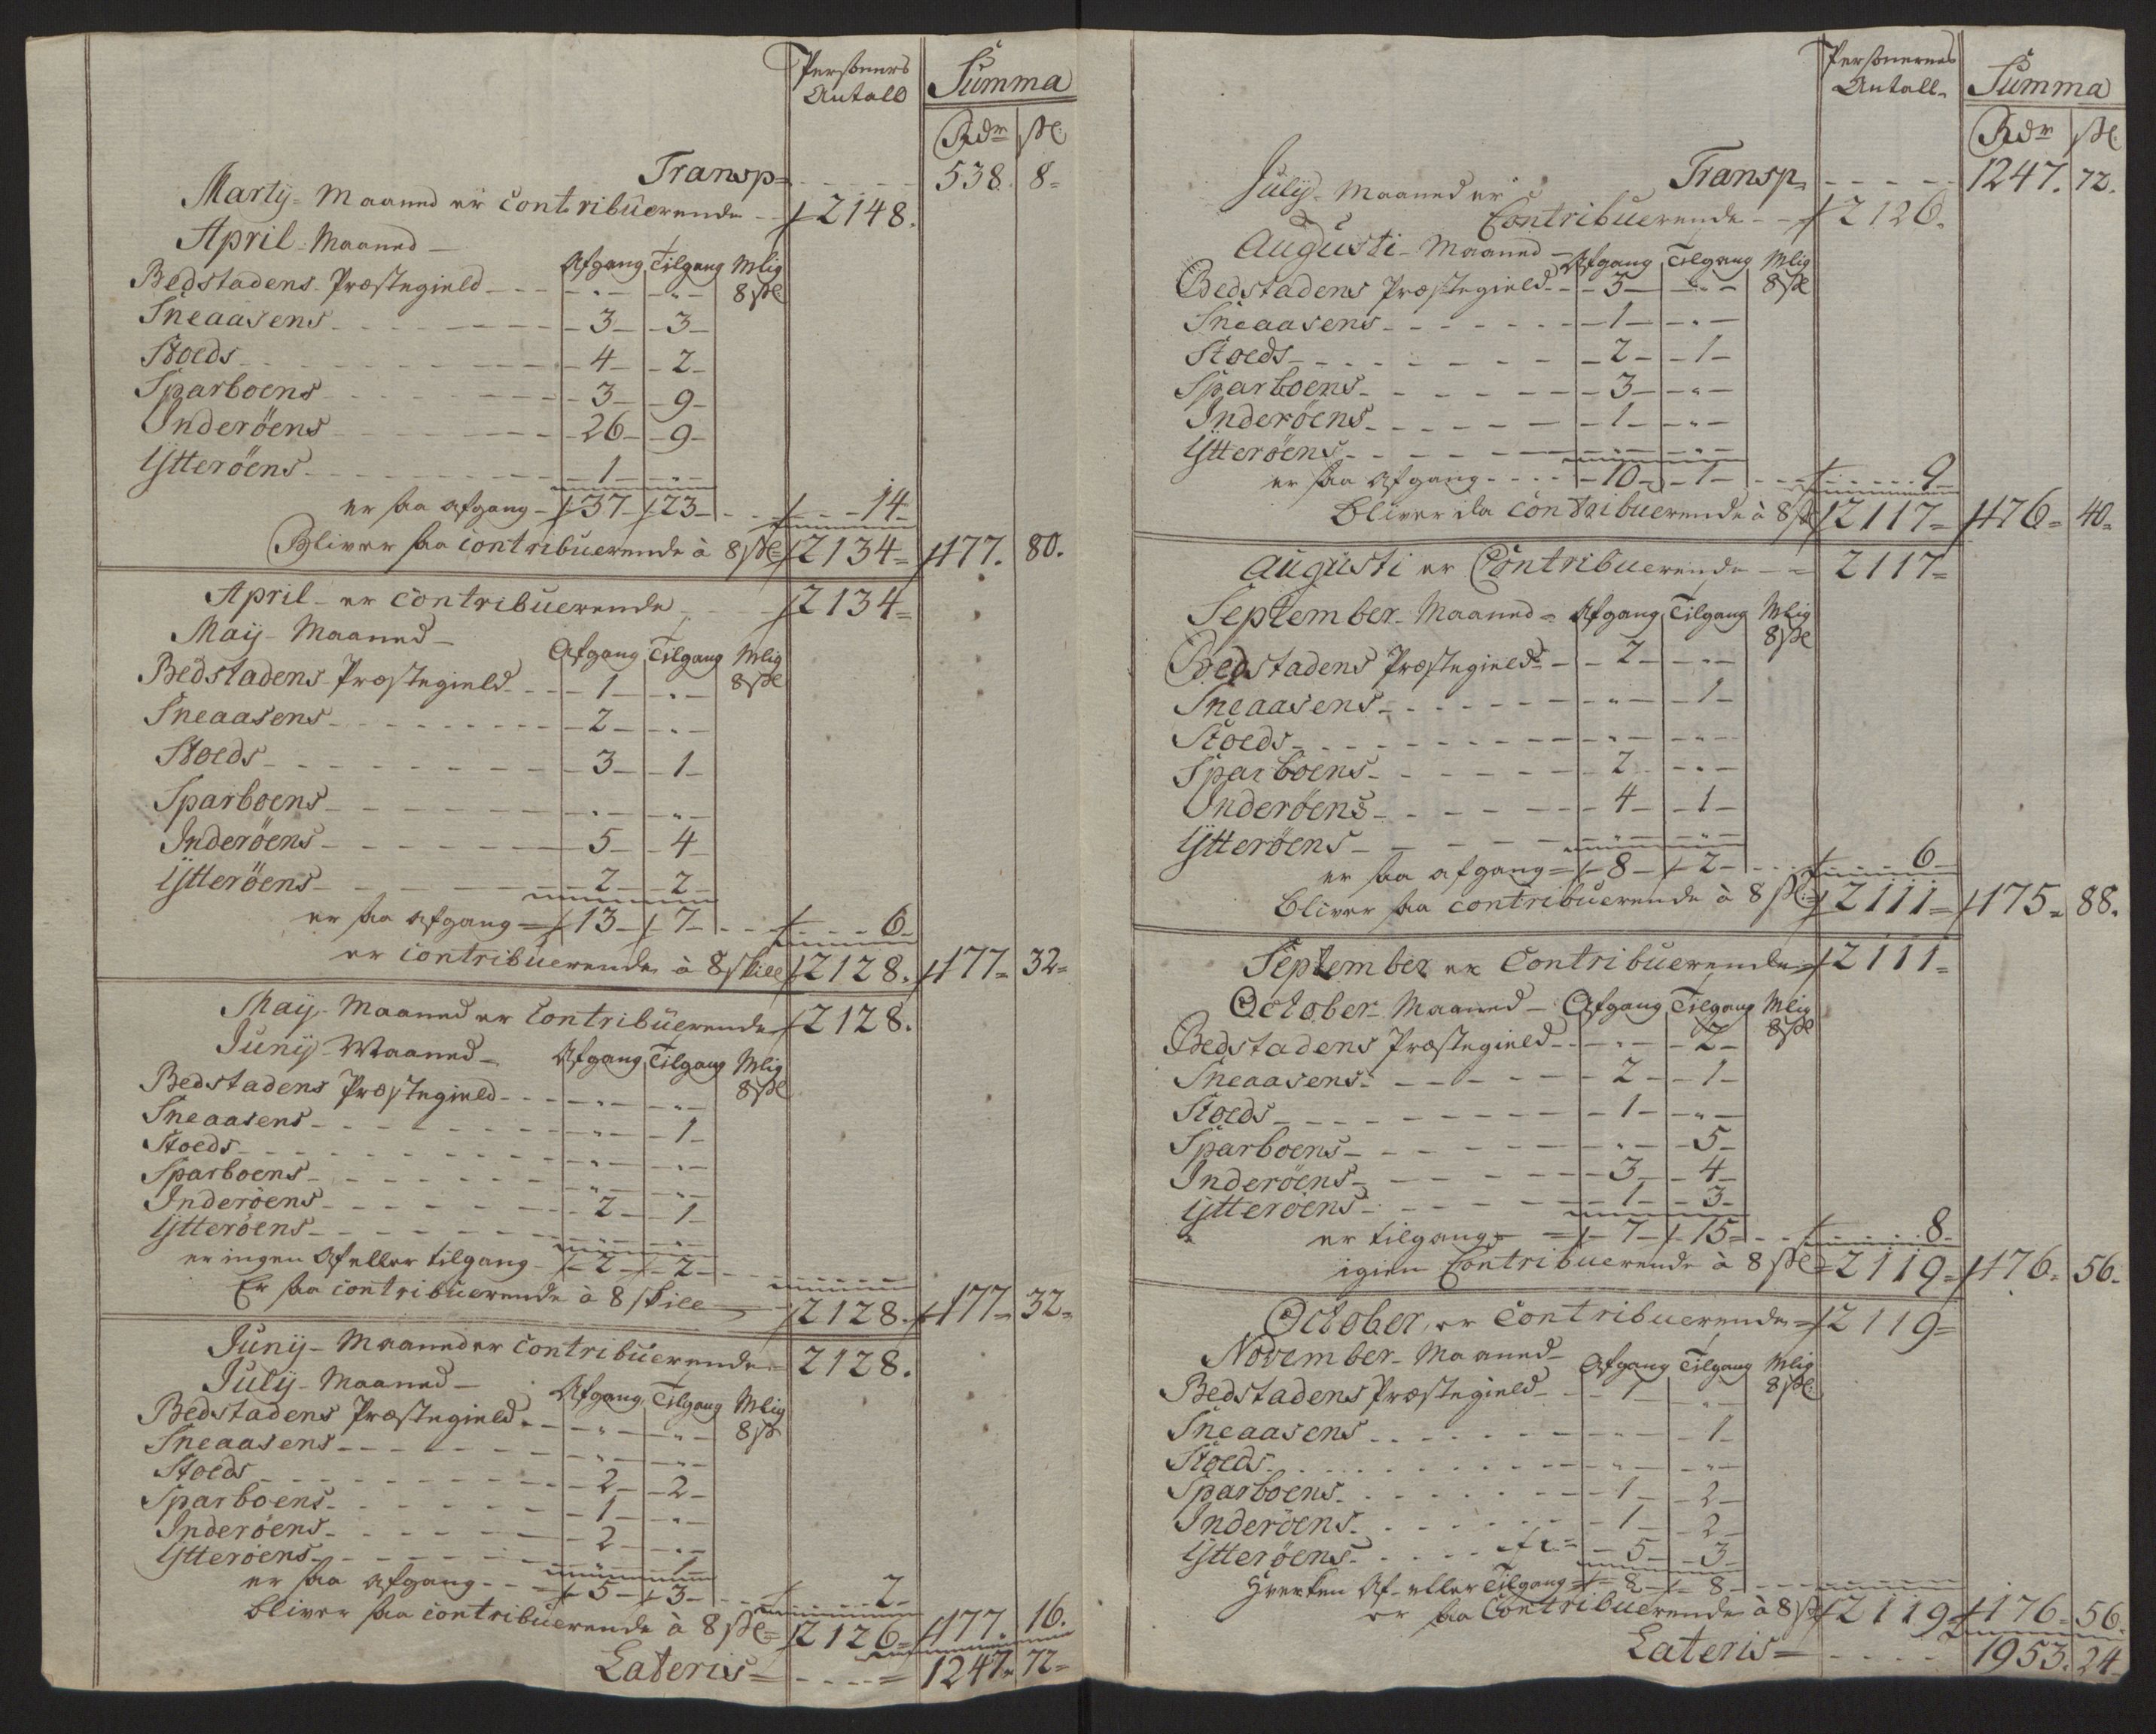 Personers Antall Summa
Rdr sk:
Transp= 538. 8=
Martij= Maaned er Contribuerende 2148.
April= Maaned Afgang Tilgang Mlig
Bedstadens Præstegield - " - - " - 8 sk
Sneaasens 3 3
Stoeds 4 2
Sparboens 3 9
Inderöens 26 9
Ytteröens 1 "
er saa afgang 37 23 14
Bliver saa Contribuerende à 8 sk= 2134= 177. 80.
April er Contribuerende 2134=
Maij Maaned Afgang Tilgang Mlig
Bedstadens Præstegield 1 " 8 sk
Sneaasens 2 "
Stoeds 3 1
Sparboens " "
Inderöens 5 4
Ytteröens 2 2
er saa afgang= 13 7 6
er Contribuerende à 8 skill 2128. 177= 32=
Maij Maaned er Contribuerende 2128.
Junij Maaned Afgang Tilgang Mlig
Bedstadens Præstegield " " 8 sk
Sneaasens " 1
Stoeds " "
Sparboens " "
Inderöens 2 1
Ytteröens " "
er ingen Af eller tilgang 2 2
Er saa Contribuerende à 8 skill 2128. 177= 32=
Junij Maaned er Contribuerende= 2128.
Julij Maaned Afgang Tilgang Mlig
Bedstadens Præstegield " " 8 sk
Sneaasens " "
Stoeds 2 2
Sparboens 1 "
Inderöens 2 "
Ytteröens " 1
er saa afgang 5 3 2
bliver saa Contribuerende à 8 sk= 2126= 177. 16.
Lateris= 1247= 72=
Personernes Antall Summa
Rdr sk:
Transp 1247. 72.
Julij Maaned er
Contribuerende 2126.
Augusti Maaned Afgang Tilgang Mlig
Bedstadens Præstegield 3 " 8 sk
Sneaasens 1 "
Stoeds 2 1
Sparboens 3 "
Inderöens 1 "
Ytteröens " "
er saa afgang 10 1 9
bliver da Contribuerende à 8 sk 2117= 176= 40=
Augusti er Contribuerende 2117=
September Maaned= Afgang Tilgang Mlig
Bedstadens Præstegield 2 " 8 sk
Sneaasens " 1
Stoeds " "
Sparboens 2 "
Inderöens 4 1
Ytteröens " "
er saa afgang= 8 2 6
bliver saa Contribuerende à 8 sk= 2111= 175= 88.
September er Contribuerende 2111=
October Maaned Afgang Tilgang Mlig
Bedstadens Præstegield " 2 8 sk
Sneaasens 2 1
Stoeds 1 "
Sparboens " 5
Inderöens 3 4
Ytteröens 1 3
er tilgang= 7 15 8
igien Contribuerende à 8 sk= 2119= 176= 56.
October, er Contribuerende= 2119=
November Maaned Afgang Tilgang Mlig
Bedstadens Præstegield 1 " 8 sk:
Sneaasens " 1
Stoeds " "
Sparboens 1 2
Inderöens 1 2
Ytteröens 5 3
Hverken Af- eller Tilgang= 8 8
er saa Contribuerende à 8 sk 2119 176= 56.
Lateris= 1953. 24